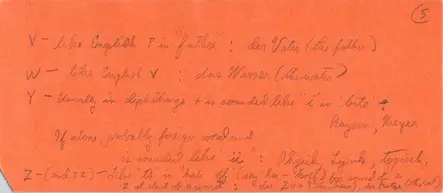 5
V - like English F in "father" : der Vater (the father)
W - like English V : das Wasser (the water)
Y - Usually in diphthongs & is sounded like "i" in bite :
Bayern, Meyer
If alone, probably foreign word and
is sounded like ü : Physik, Lyrik, typisch,
Z - (and tz) - like ts in